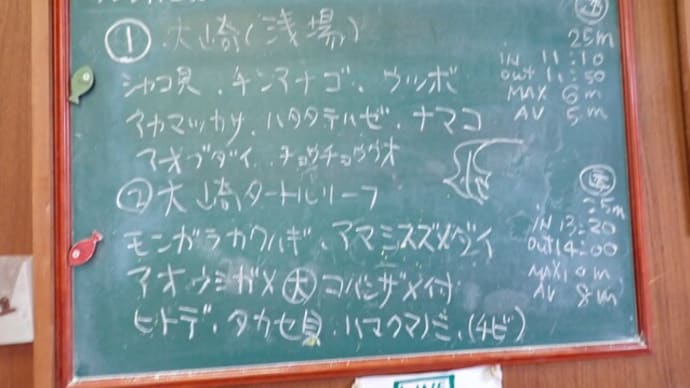 ① 大崎(浅場)
シャコ貝、チンアナゴ、ウツボ
アカマツカサ、ハタタテハゼ、ナマコ
アオブダイ チョウチョウウオ
25m
IN 11:10
out 11:50
MAX 6m
AV 5m
② 大崎タートルリーフ
モンガラカワハギ、アマミスズメダイ
アオウミガメ大 コバンザメ付
ヒトデ、タカセ貝、ハマクマノミ、(チビ)
25m
IN 13:20
out 14:00
MAX 10m
AV 8m